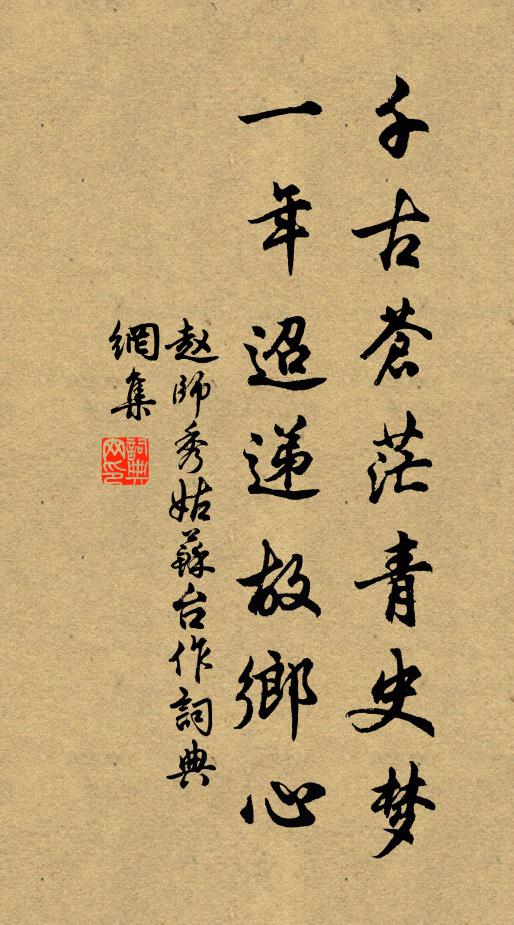 千古蒼茫青史梦
一年迢递故鄉心
赵師秀姑蘇台作詞典
網集
詞典
网印